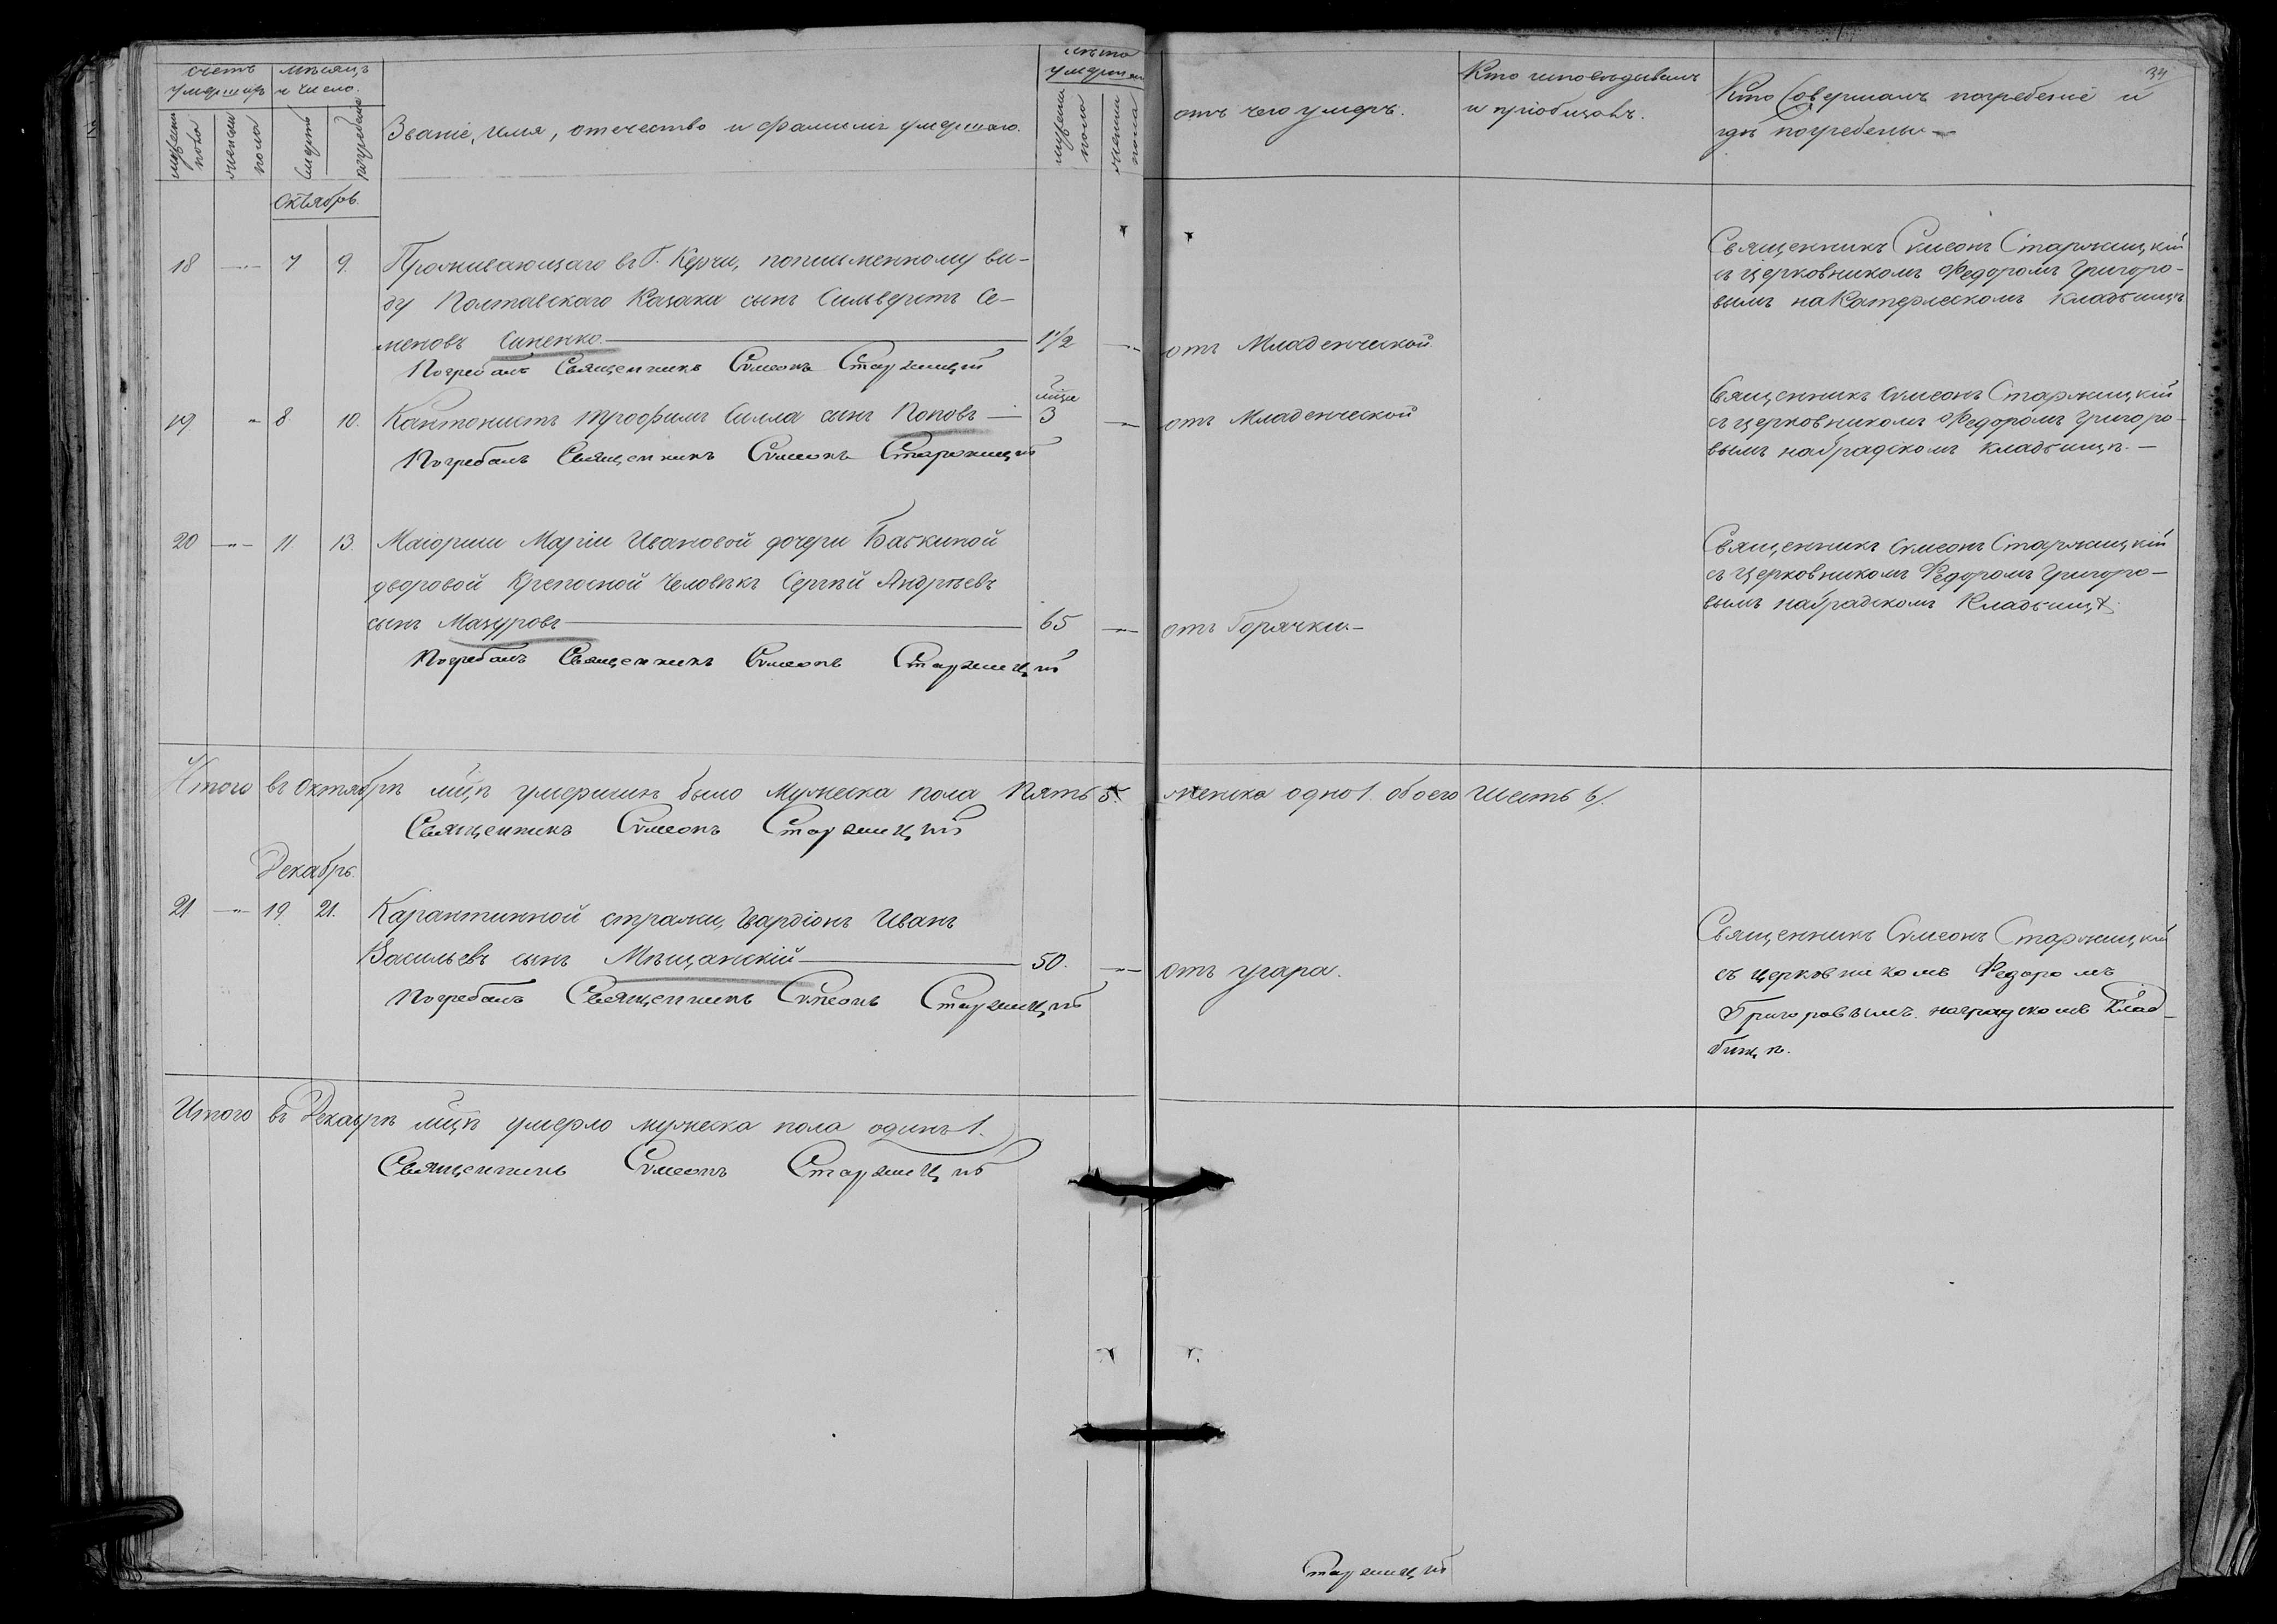 счетъ умершихъ
мѣсяцъ и число.
мужеска пола
женска пола
смерть
погребенія
Званіе, имя, отечество и фамилія умершаго.
лѣта умершаго
мужеска пола
женска пола
отъ чего умеръ.
Кто исповѣдывалъ
и пріобщалъ.
34
Кто совершалъ погребеніе и
гдѣ погребены —
Октябрь.
18 — 7 9. Проживающаго въ Г. Керчи, пописьменному ви-
ду Полтавскаго Казака сынъ Сильверстъ Се-
меновъ Синенко. — 1 1/2 — отъ Младенческой
Погребалъ Священникъ Симеонъ Старжицкій
Священникъ Симеонъ Старжицкій
съ церковникомъ Федоромъ Григоро-
вымъ на Катерлескомъ кладбищѣ
19 " 8 10. Кантонистъ Трофимъ Силла сынъ Поповъ — мца 3 — отъ Младенческой
Погребалъ Священникъ Симеонъ Старжицкій
Священникъ Симеонъ Старжицкій
съ церковникомъ Федоромъ Григоро-
вымъ наградскомъ кладбищѣ. —
20 — 11 13. Маіорши Маріи Ивановой дочери Баскиной
дворовой Крепосной Человѣкъ Сергѣй Андрѣевъ
сынъ Мазуровъ — 65 — отъ Горячки. —
Погребалъ Священникъ Симеонъ Старжицкій
Священникъ Симеонъ Старжицкій
съ Церковникомъ Федоромъ Григоро-
вымъ наградскомъ Кладбищѣ.
Итого въ Октябрѣ мцѣ умершихъ было Мужеска пола Пять 5. женска одно 1. обоего Шесть 6/.
Священникъ Симеонъ Старжицкій
Декабрь.
21 — 19. 21. Карантинной стражи, Гвардіонъ Иванъ
Васильевъ сынъ Мѣщанскій — 50. — отъ угара.
Погребалъ Священникъ Симеонъ Старжицкій
Священникъ Симеонъ Старжицкій
съ церковникомъ Федоромъ
Григоровымъ. наградскомъ Клад-
бищѣ.
Итого въ Декабрѣ мцѣ умерло мужеска пола одинъ 1.
Священникъ Симеонъ Старжицкій
Старжицкій